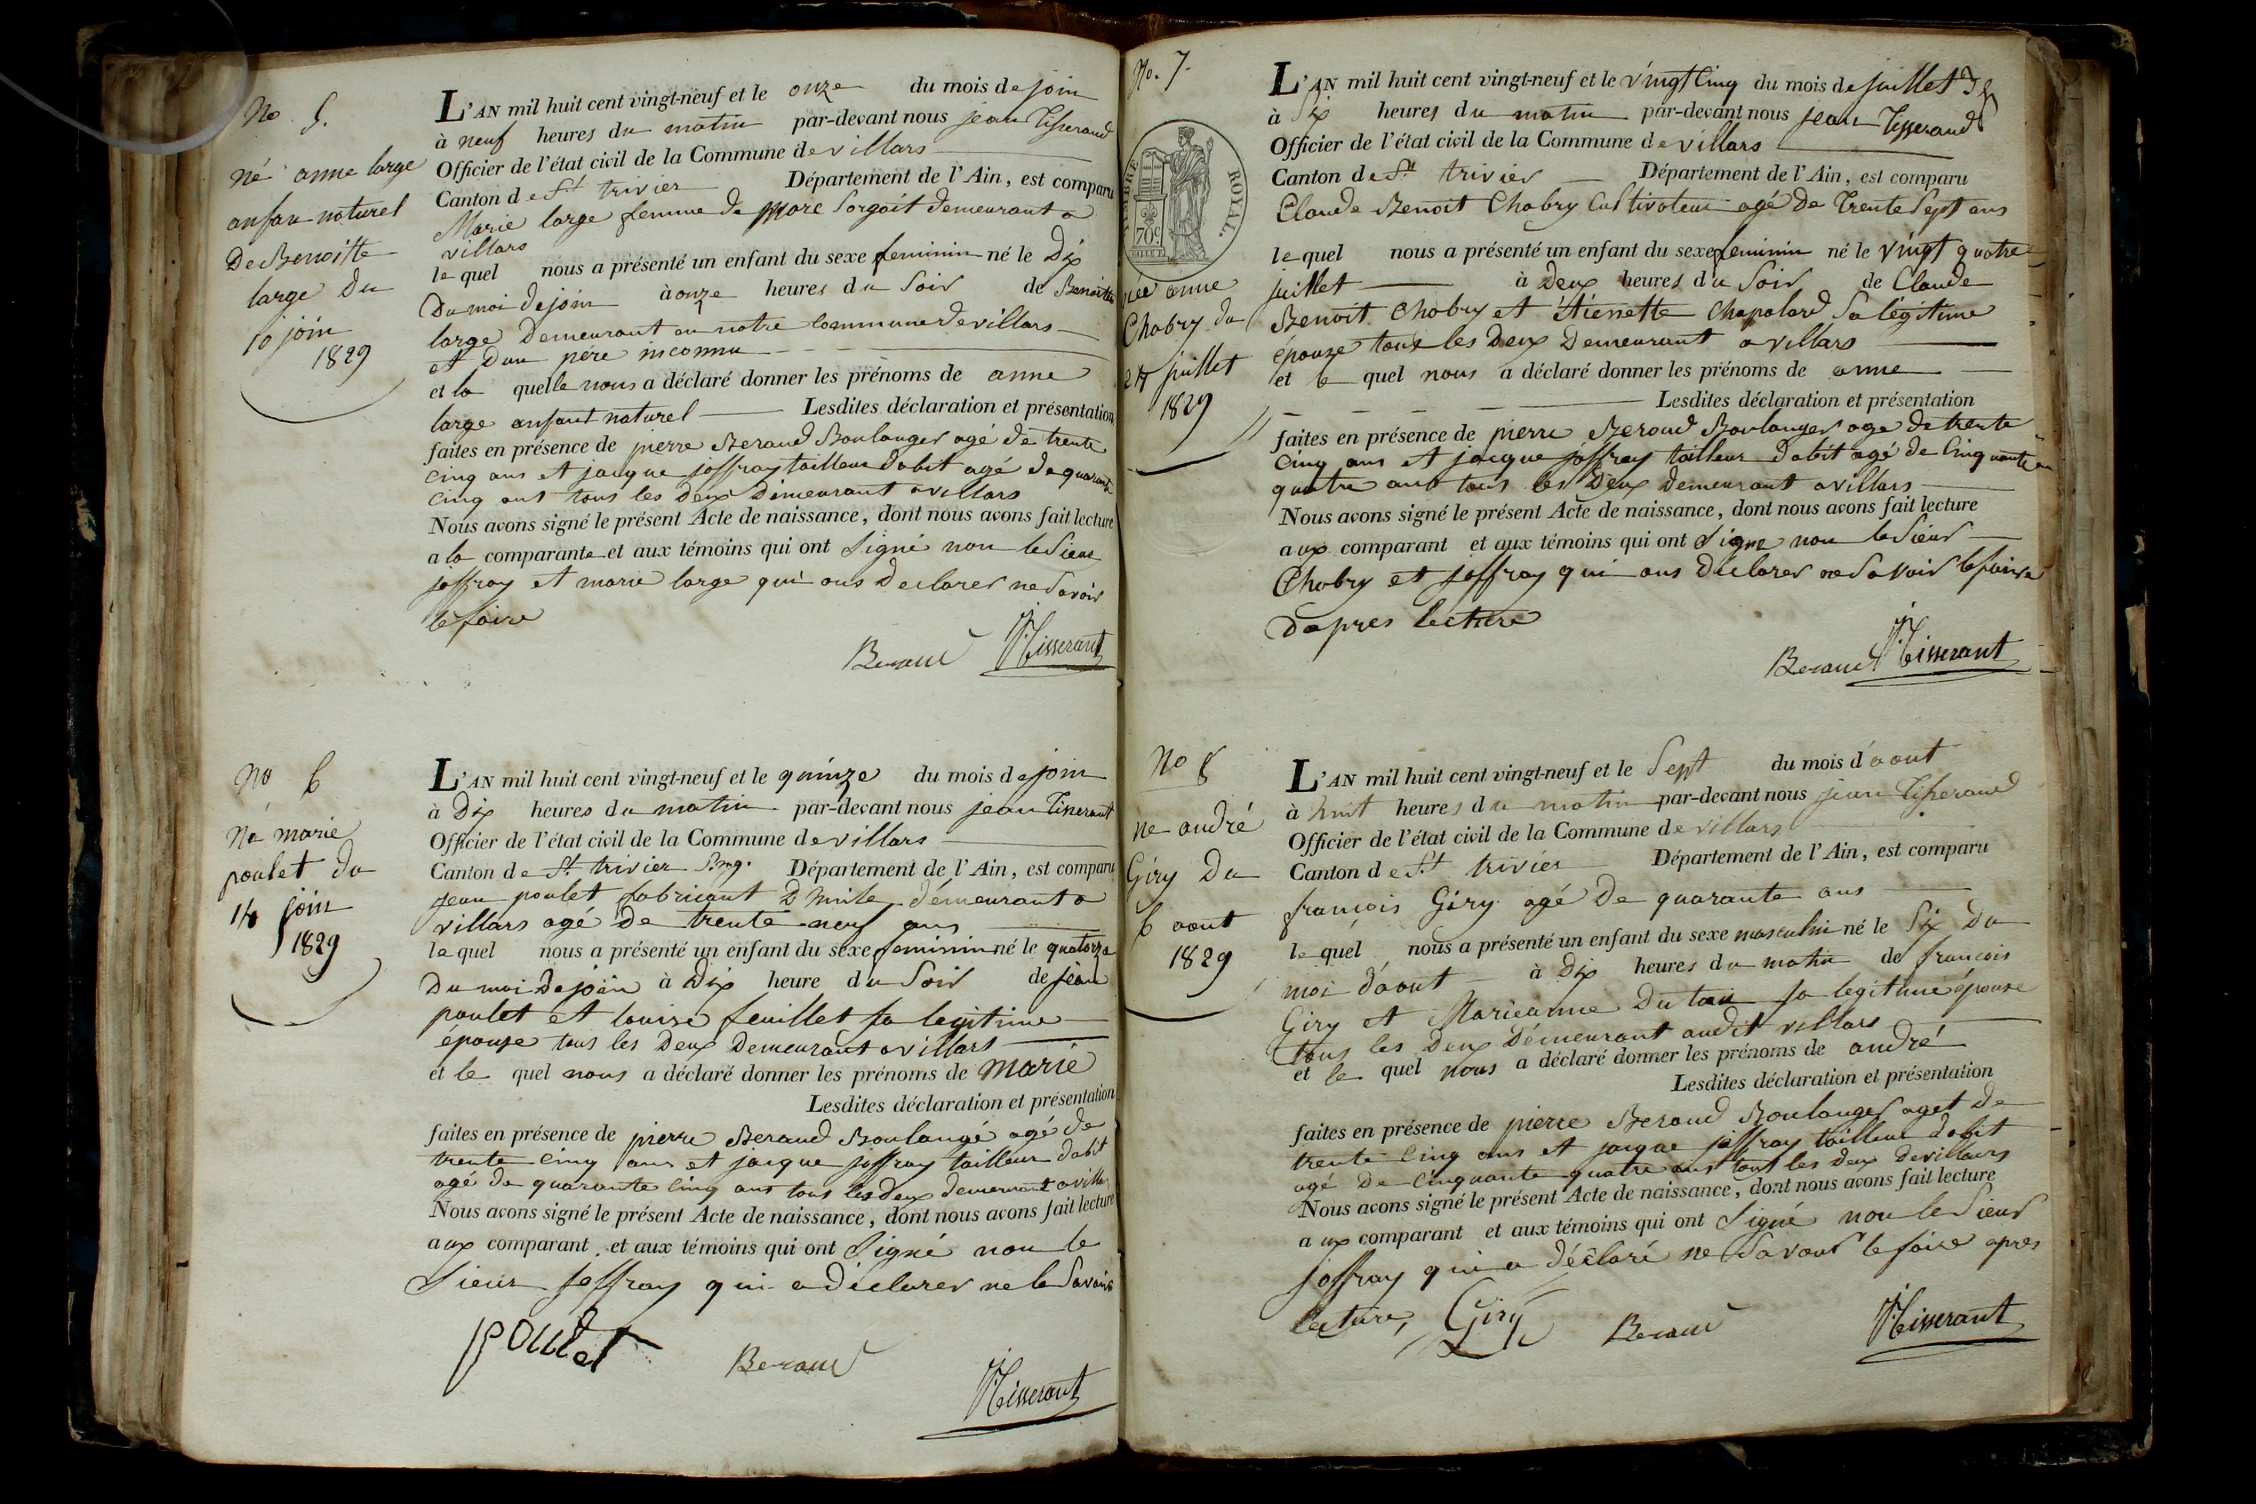 No 5.
né anne large
anfan naturel
De Benoitte
large Du
10 join
1829
L'AN mil huit cent vingt-neuf et le onze du mois de join
à neuf heures du matin par-devant nous jean Tisserand
Officier de l'état civil de la Commune de villars
Canton de St trivier Département de l'Ain, est comparu
Marie large femme de Marc Sorgait demeurant a
villars
le quel nous a présenté un enfant du sexe feminin né le Dix
Du moi de join à onze heures du Soir de Benoitte
large Demeurant en notre Commune de villars
et Dun père inconnu
et la quelle nous a déclaré donner les prénoms de anne
large anfant naturel Lesdites déclaration et présentation
faites en présence de pierre Beraud Boulanger agé de trente
Cinq ans et jacque joffray tailleur Dabit agé de quarante
Cinq ant tous les Deux Demeurant a villars
Nous avons signé le présent Acte de naissance, dont nous avons fait lecture
a la comparante et aux témoins qui ont Signé non le Sieur
joffray et marie large qui ons Declarer ne Savoir
le faire
Beraud JTisserant
No 6
Né marie
poulet du
14 join
1829
L'AN mil huit cent vingt-neuf et le quinze du mois de join
à Dix heures du matin par-devant nous jean Tisserant
Officier de l'état civil de la Commune de villars
Canton de St trivier Département de l'Ain, est comparu
jean poulet fabricant D huile démeurant a
villars agé de trente neuf ans
le quel nous a présenté un enfant du sexe feminin né le quatorze
Du moi De join à Dix heure du Soir de jean
poulet et louise feuillet Sa legitime
épouse tous les Deux Demeurant a villars
et le quel nous a déclaré donner les prénoms de marie
Lesdites déclaration et présentation
faites en présence de pierre Beraud Boulangé agé de
trente Cinq ans et jacque joffray tailleur Dabit
agé de quarante Cinq ans tous les Deux demeurant a villar
Nous avons signé le présent Acte de naissance, dont nous avons fait lecture
aux comparant et aux témoins qui ont Signé non le
Sieur joffray qui a déclarer ne le Savoire
poulet Beraud JTisserant
No. 7.
TIMBRE ROYAL.
70c
née anne
Chabry du
24 juillet
1829
L'AN mil huit cent vingt-neuf et le vingt Cinq du mois de juillet
à Six heures du matin par-devant nous jean Tisserand
Officier de l'état civil de la Commune de villars
Canton de St trivier Département de l'Ain, est comparu
Claude Benoit Chabry Cultivateur agé de Trente Sept ans
le quel nous a présenté un enfant du sexe feminin né le vingt quatre
juillet à Deux heures du Soir de Claude
Benoit Chabry et Etiennette Chapelard Sa légitime
épouse tous les Deux Demeurant a villars
et le quel nous a déclaré donner les prénoms de anne
Lesdites déclaration et présentation
faites en présence de pierre Beraud Boulanger age de trente
Cinq ans et jacque joffray tailleur Dabit agé de Cinquante
quatre ans tous les Deux Demeurant a villars
Nous avons signé le présent Acte de naissance, dont nous avons fait lecture
aux comparant et aux témoins qui ont Signe non le Sieur
Chabry et joffray qui ons Déclarer ne Savoir le faire
Dapres lecture
Beraud JTisserant
No 8
né andré
Giry Du
6 aout
1829
L'AN mil huit cent vingt-neuf et le Sept du mois d'aout
à huit heures du matin par-devant nous jean Tisserand
Officier de l'état civil de la Commune de villars
Canton de St trivier Département de l'Ain, est comparu
françois Giry agé De quarante ans
le quel nous a présenté un enfant du sexe masculin né le Six Du
moi d'aout à Dix heures du matin de francois
Giry et Marieanne Sa legitime épouse
tous les Deux Démeurant audit villars
et le quel nous a déclaré donner les prénoms de andré
Lesdites déclaration et présentation
faites en présence de pierre Beraud Boulanger aget De
trente Cinq ans et jacque joffray tailleur dabit
agé De Cinquante quatre ans tous les deux De villars
Nous avons signé le présent Acte de naissance, dont nous avons fait lecture
aux comparant et aux témoins qui ont Signé non le Sieur
joffray qui a déclaré ne Savoir le faire apres
lecture, Giry Beraud JTisserant